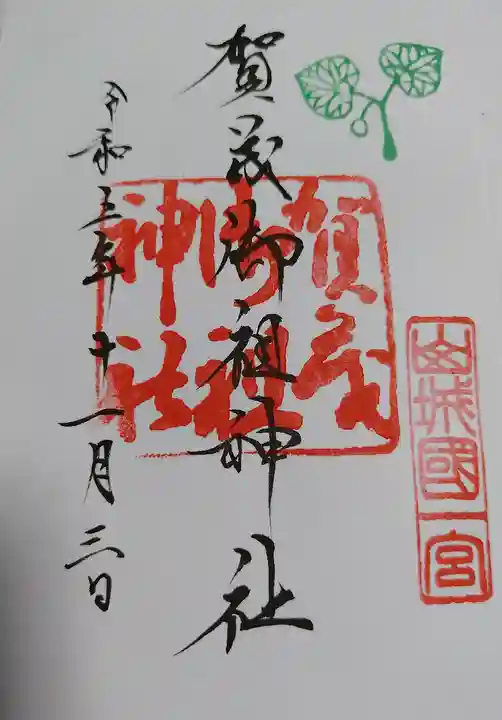 山城國一宮
賀茂御祖神社
賀茂
御祖
神社
令和三年十一月三日